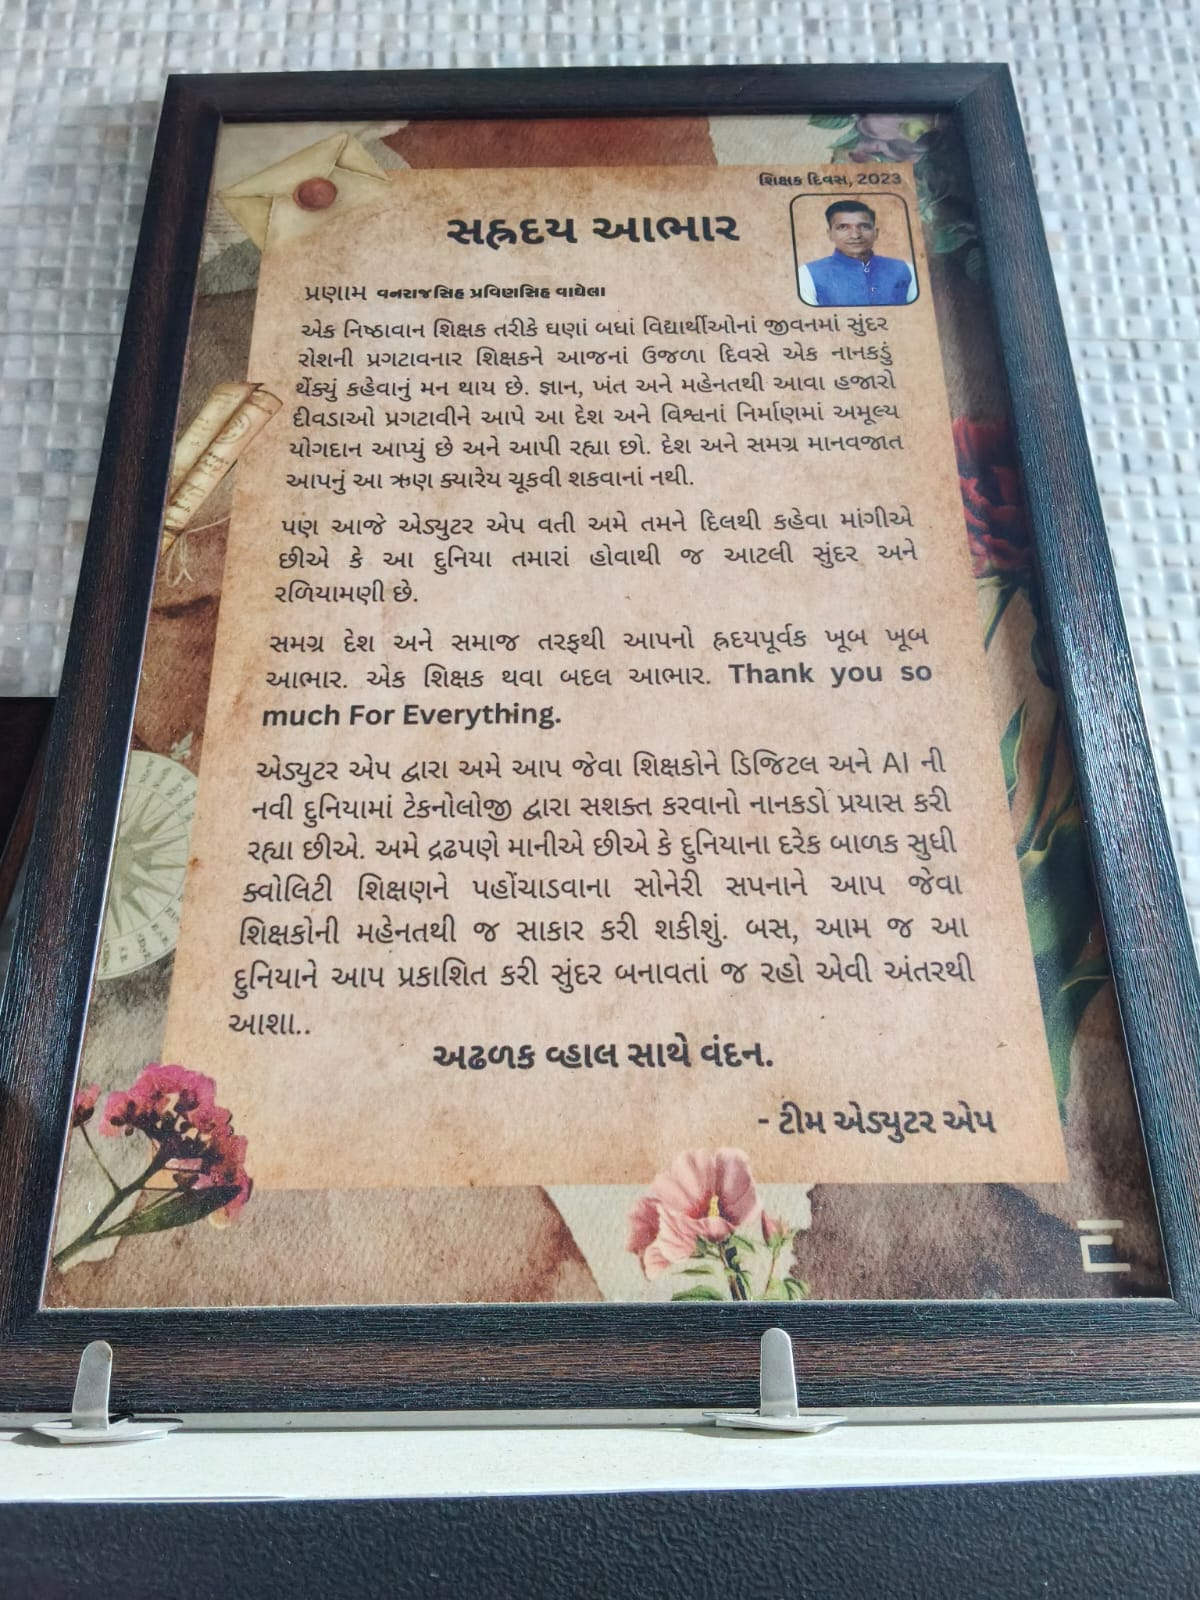 શિક્ષક દિવસ, 2023
સહ્રદય આભાર
પ્રણામ વનરાજસિહ પ્રવિણસિહ વાઘેલા
એક નિષ્ઠાવાન શિક્ષક તરીકે ઘણાં બધાં વિદ્યાર્થીઓનાં જીવનમાં સુંદર
રોશની પ્રગટાવનાર શિક્ષકને આજનાં ઉજળા દિવસે એક નાનકડું
થેંક્યું કહેવાનું મન થાય છે. જ્ઞાન, ખંત અને મહેનતથી આવા હજારો
દીવડાઓ પ્રગટાવીને આપે આ દેશ અને વિશ્વનાં નિર્માણમાં અમૂલ્ય
યોગદાન આપ્યું છે અને આપી રહ્યા છો. દેશ અને સમગ્ર માનવજાત
આપનું આ ઋણ ક્યારેય ચૂકવી શકવાનાં નથી.
પણ આજે એડ્યુટર એપ વતી અમે તમને દિલથી કહેવા માંગીએ
છીએ કે આ દુનિયા તમારાં હોવાથી જ આટલી સુંદર અને
રળિયામણી છે.
સમગ્ર દેશ અને સમાજ તરફથી આપનો હ્રદયપૂર્વક ખૂબ ખૂબ
આભાર. એક શિક્ષક થવા બદલ આભાર. Thank you so
much For Everything.
એડ્યુટર એપ દ્વારા અમે આપ જેવા શિક્ષકોને ડિજિટલ અને AI ની
નવી દુનિયામાં ટેકનોલોજી દ્વારા સશક્ત કરવાનો નાનકડો પ્રયાસ કરી
રહ્યા છીએ. અમે દ્રઢપણે માનીએ છીએ કે દુનિયાના દરેક બાળક સુધી
ક્વોલિટી શિક્ષણને પહોંચાડવાના સોનેરી સપનાને આપ જેવા
શિક્ષકોની મહેનતથી જ સાકાર કરી શકીશું. બસ, આમ જ આ
દુનિયાને આપ પ્રકાશિત કરી સુંદર બનાવતાં જ રહો એવી અંતરથી
આશા..
અઢળક વ્હાલ સાથે વંદન.
- ટીમ એડ્યુટર એપ